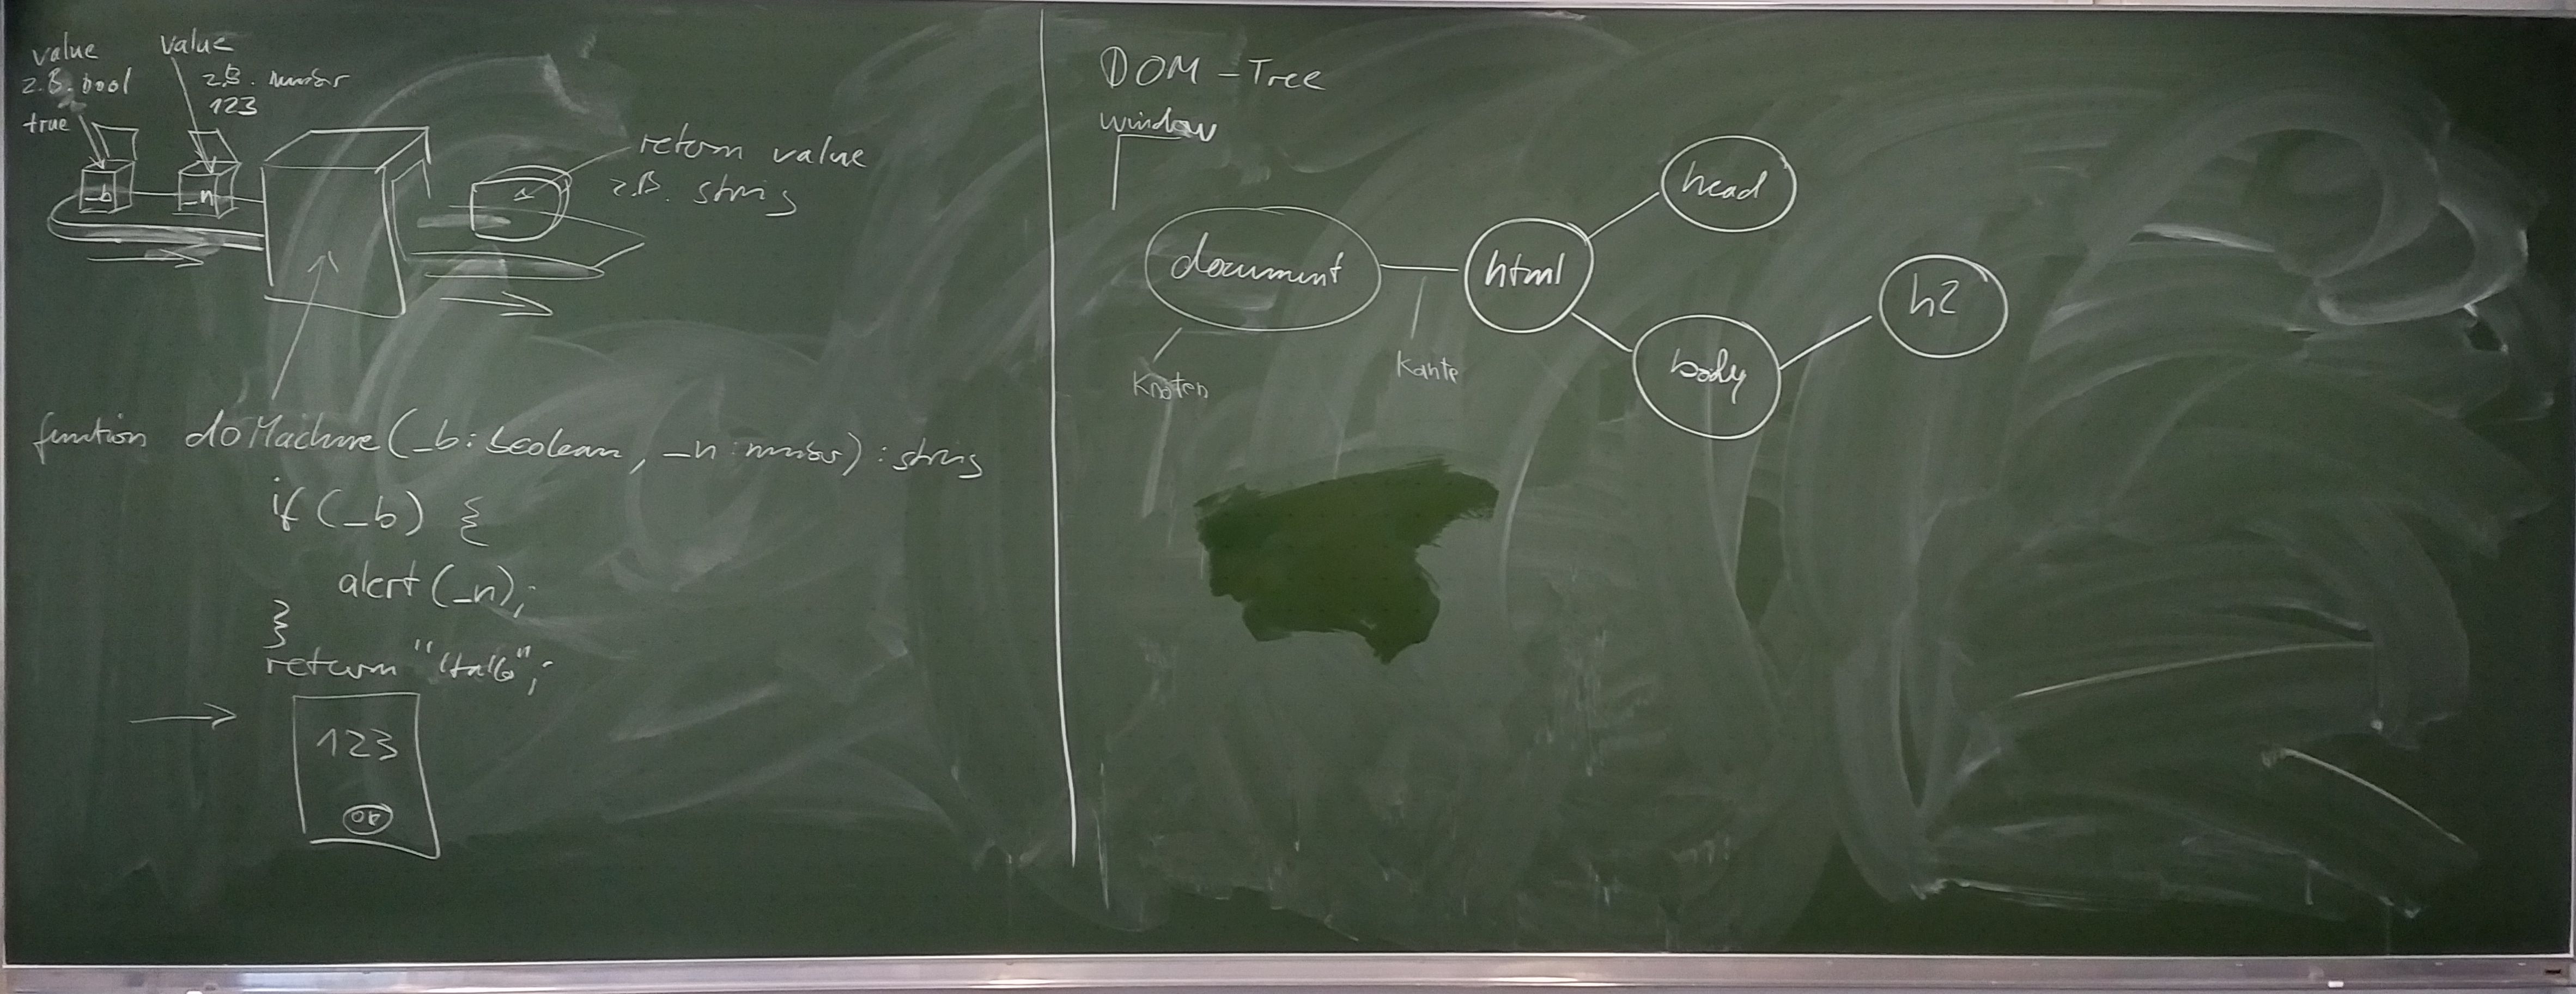 value
z.B. bool
true
value
z.B. number
123
_b
_n
return value
z.B. string
function doMachine(_b: boolean, _n: number): string
if (_b) {
alert (_n);
}
return "Hallo";
123
OK
DOM - Tree
window
document
html
head
body
h2
Knoten
Kante